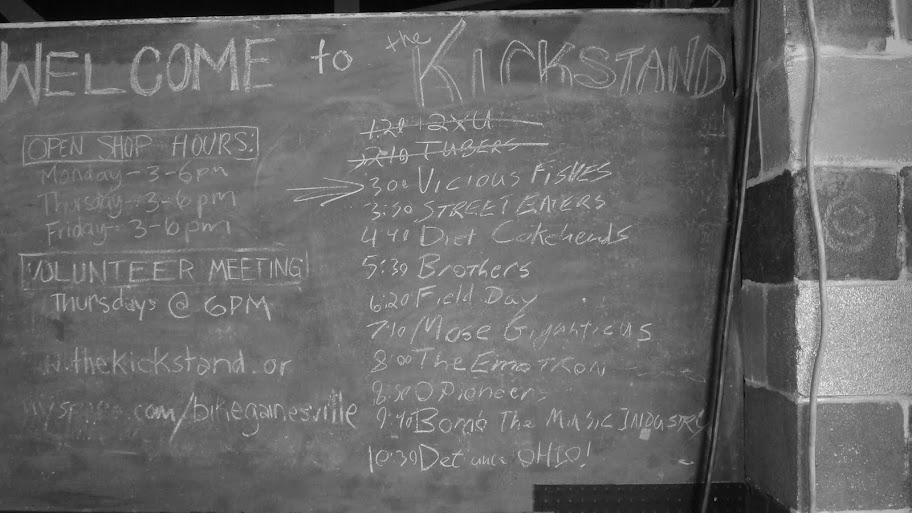 WELCOME to the KICKSTAND
OPEN SHOP HOURS:
Monday - 3-6pm
Thursday - 3-6pm
Friday - 3-6pm
VOLUNTEER MEETING
Thursdays @ 6PM
w.thekickstand.or
myspace.com/bikegainesville
1:20 12XU
2:10 TUBERS
3:00 VICIOUS FISHES
3:50 STREET EATERS
4:40 Diet Cokeheads
5:30 Brothers
6:20 Field Day
7:10 Mose Giganticus
8:00 The EmotRon
8:50 O Pioneers
9:40 Bomb The Music INDUSTRY
10:30 Defiance OHIO!